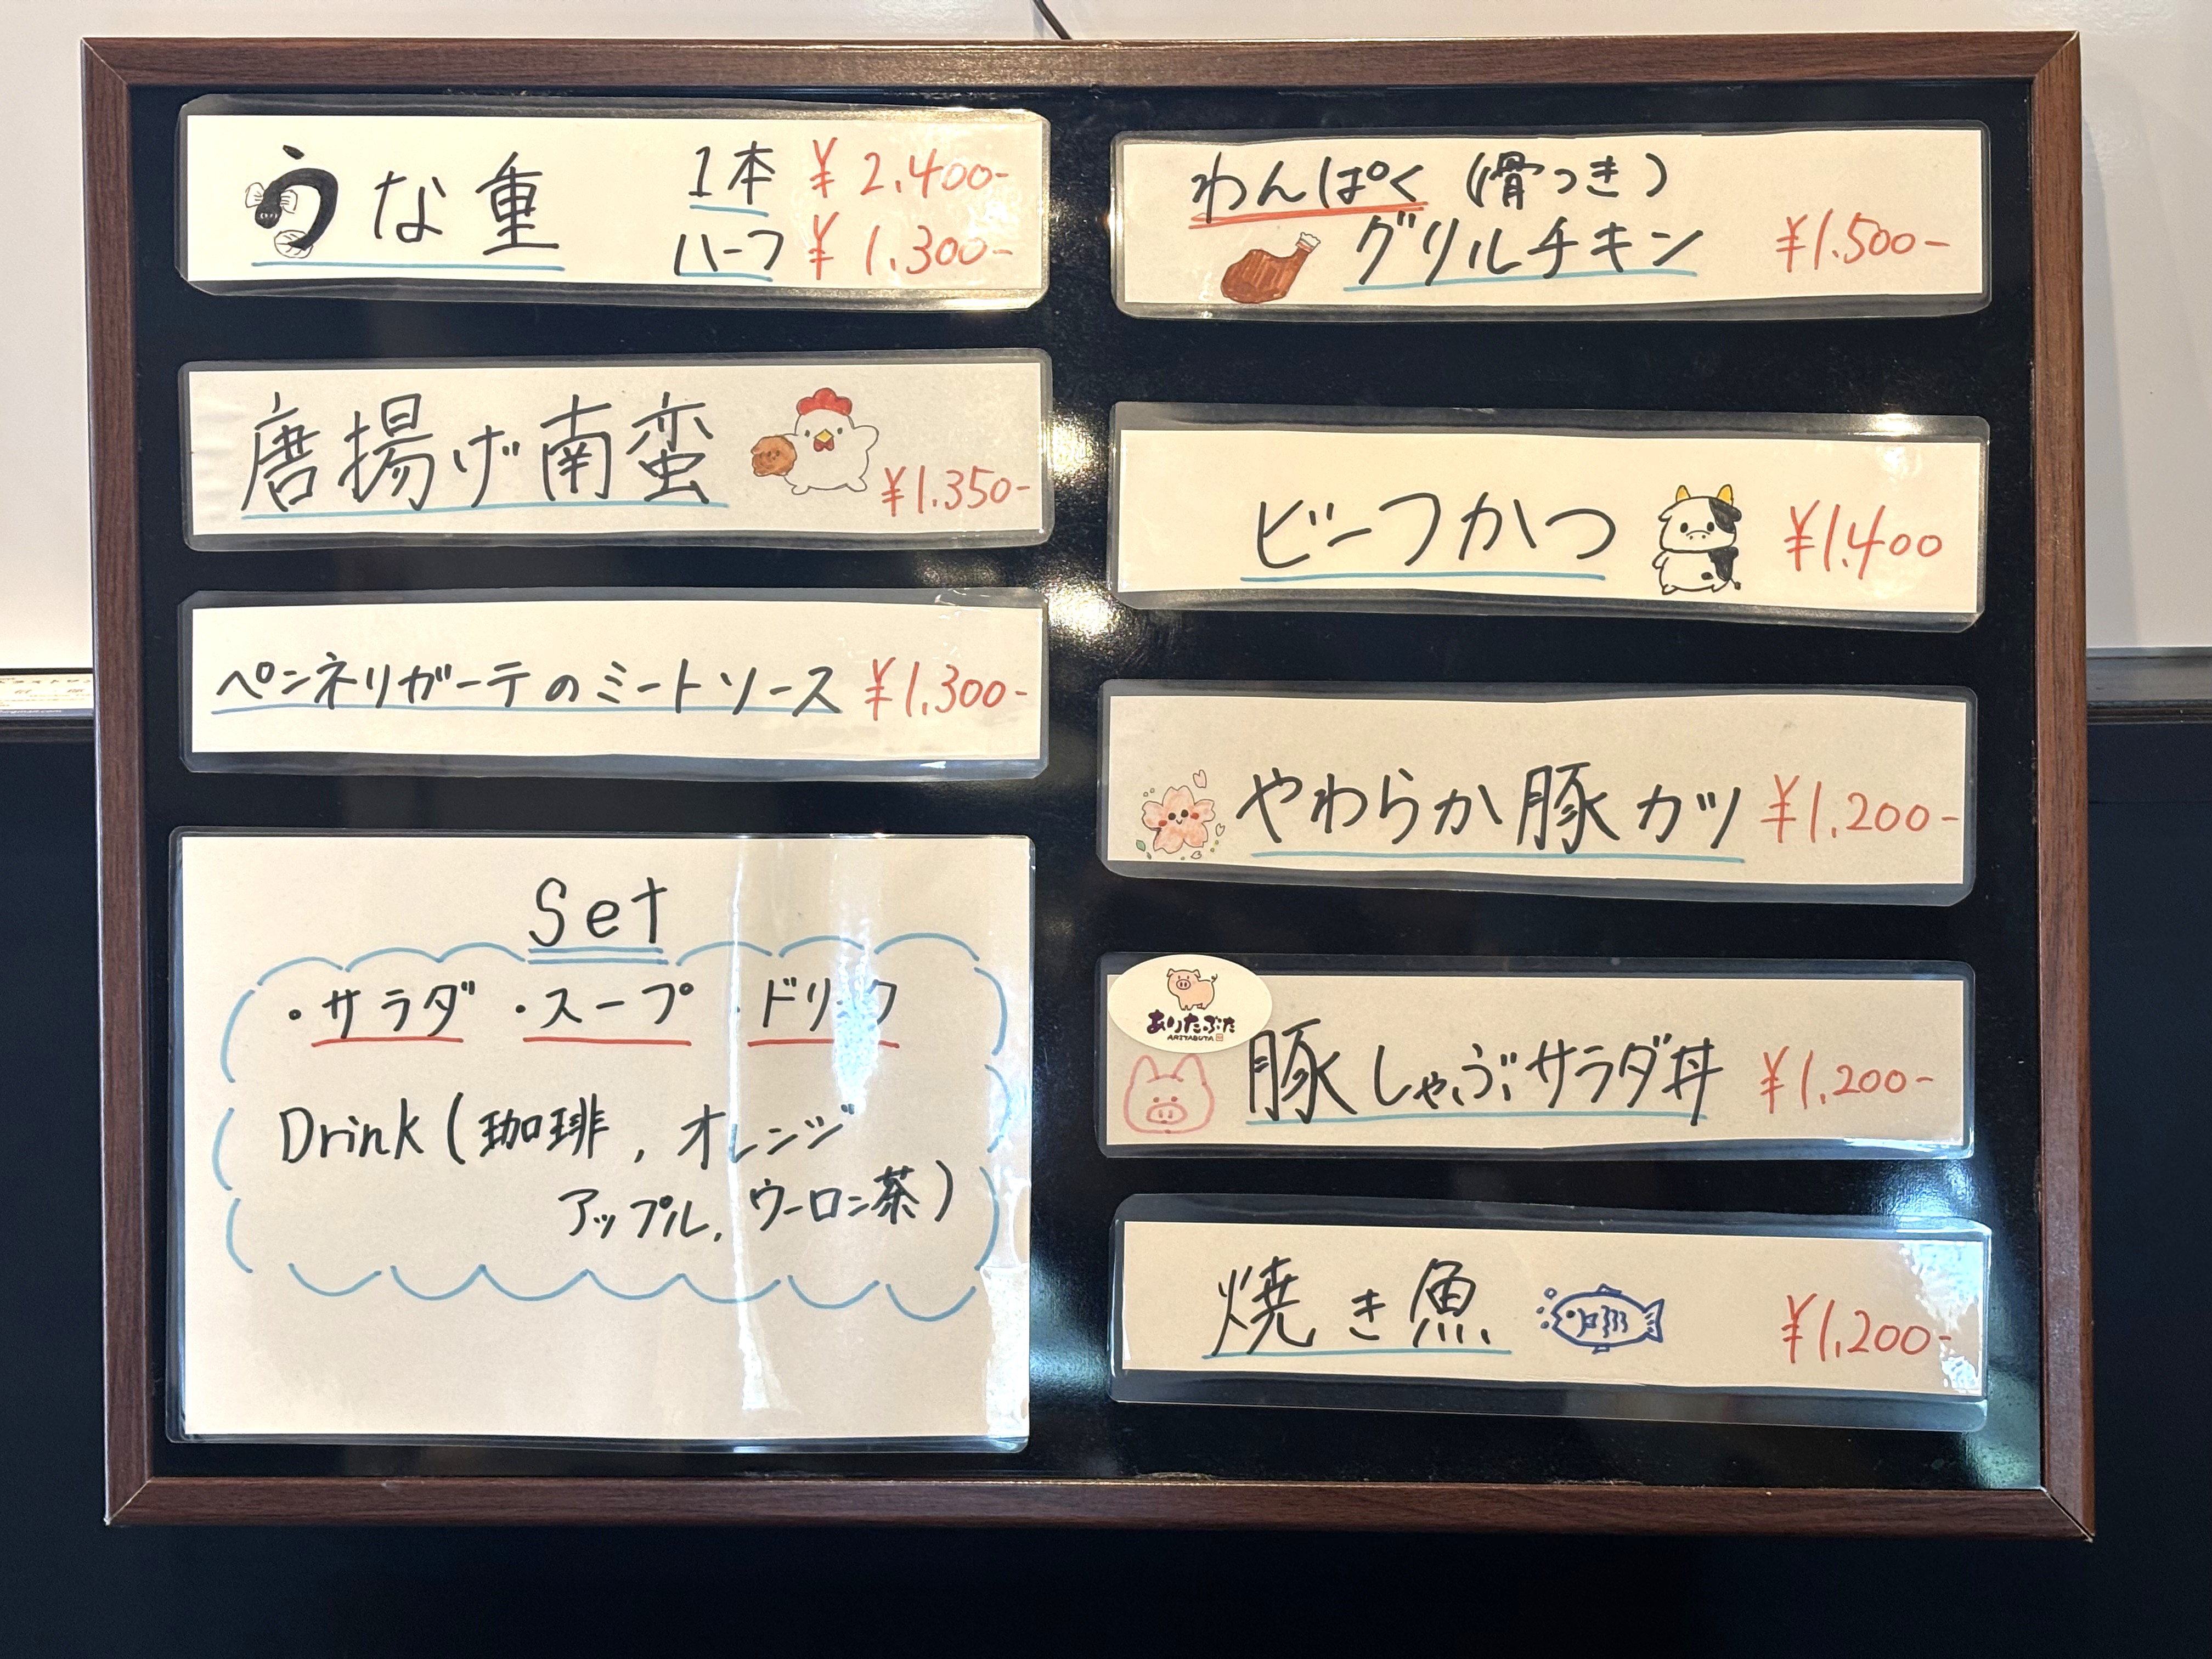 うな重 1本 ¥2,400-
ハーフ ¥1,300-
唐揚げ南蛮 ¥1.350-
ペンネリガーテのミートソース ¥1,300-
Set
・サラダ ・スープ ・ドリンク
Drink (珈琲, オレンジ
アップル, ウーロン茶)
わんぱく (骨つき)
グリルチキン ¥1.500-
ビーフかつ ¥1.400
やわらか豚カツ ¥1.200-
ありたぶた
ARITABUTA
豚しゃぶサラダ丼 ¥1,200-
焼き魚 ¥1,200-